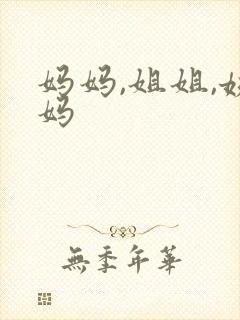 妈妈,姐姐,
妈
無季年華